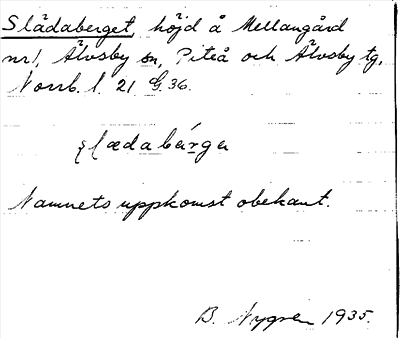 Slädaberget, höjd å Mellangård
nr 1, Älvsby sn, Piteå och Älvsby tg,
Norrb. l. 21 G. 36.
slædabérge
Namnets uppkomst obekant.
B. Nygren 1935.